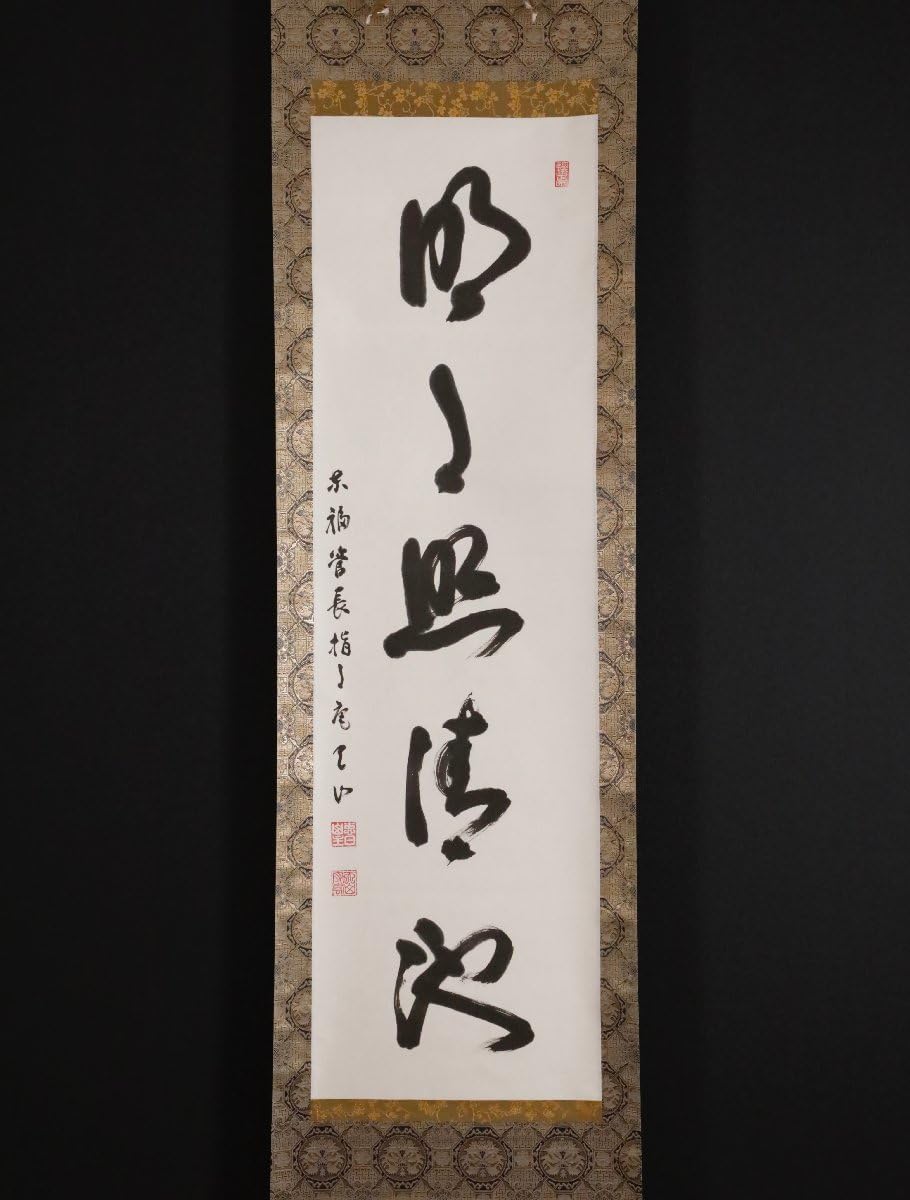 明月照清池
東福管長指月庵